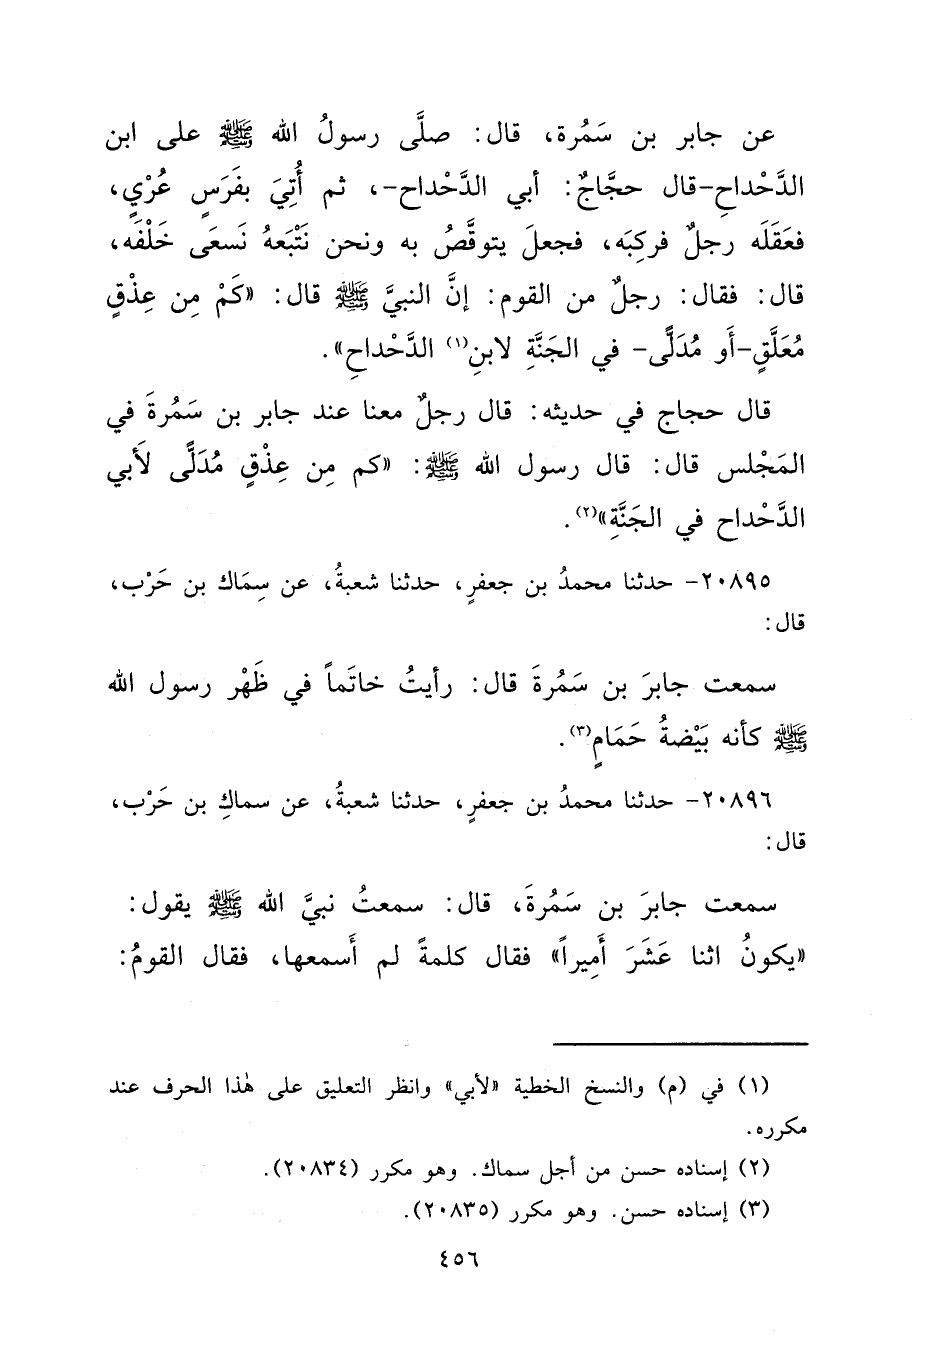 عن جابر بن سَمُرة، قال: صلَّى رسولُ الله ﷺ على ابن
الدَّحْداحِ-قال حجَّاجٌ: أبي الدَّحْداح-، ثم أُتِيَ بفَرَسٍ عُرْيٍ،
فعَقَلَه رجلٌ فركِبَه، فجعلَ يتوقَّصُ به ونحن نَتْبَعهُ نَسعَى خَلْفَه،
قال: فقال: رجلٌ من القوم: إنَّ النبيَّ ﷺ قال: «كَمْ مِن عِذْقٍ
مُعَلَّقٍ-أَو مُدَلًّى- في الجَنَّةِ لابنِ(١) الدَّحْداحِ».
قال حجاج في حديثه: قال رجلٌ معنا عند جابر بن سَمُرةَ في
المَجْلس قال: قال رسول الله ﷺ: «كم مِن عِذْقٍ مُدَلًّى لأَبي
الدَّحْداح في الجَنَّةِ»(٢).
٢٠٨٩٥- حدثنا محمدُ بن جعفرٍ، حدثنا شعبةُ، عن سِمَاك بن حَرْب،
قال:
سمعت جابرَ بن سَمُرةَ قال: رأيتُ خاتَماً في ظَهْر رسول الله
ﷺ كأنه بَيْضةُ حَمَامٍ(٣).
٢٠٨٩٦- حدثنا محمدُ بن جعفرٍ، حدثنا شعبةُ، عن سماكِ بن حَرْب،
قال:
سمعت جابرَ بن سَمُرةَ، قال: سمعتُ نبيَّ الله ﷺ يقول:
«يكونُ اثنا عَشَرَ أَمِيراً» فقال كلمةً لم أَسمعها، فقال القومُ:
(١) في (م) والنسخ الخطية «لأبي» وانظر التعليق على هٰذا الحرف عند
مكرره.
(٢) إسناده حسن من أجل سماك. وهو مكرر (٢٠٨٣٤).
(٣) إسناده حسن. وهو مكرر (٢٠٨٣٥).
٤٥٦